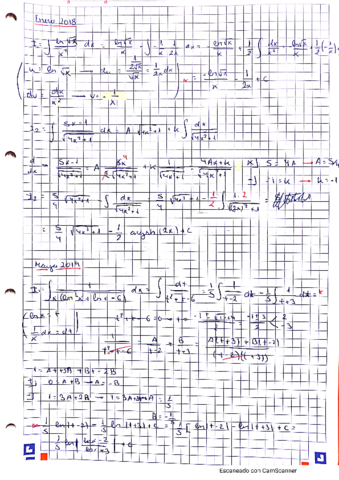 Enero 2018
I₁ = ∫ ln√x / x² dx = -ln√x / x - ∫ -1/x · 1/2x dx = -ln√x / x + 1/2 ∫ dx/x² = -ln√x / x + 1/2 (-1/x)
u = ln √x → du = 1/2x dx
= -ln√x / x - 1/2x + C
dv = dx/x² → v = -1/x
I₂ = ∫ 5x-1 / √4x²+1 dx = A √4x²+1 + k ∫ dx / √4x²+1
d/dx → 5x-1 / √4x²+1 = A 8x / 2√4x²+1 + k 1 / √4x²+1 = 4Ax+k / √4x²+1
x] 5 = 4A → A = 5/4
I] -1 = k → k = -1
I₂ = 5/4 √4x²+1 - ∫ dx / √4x²+1 = 5/4 √4x²+1 - 1/2 ∫ 1·2 / √(2x)²+1
= 5/4 √4x²+1 - 1/2 argsh (2x) + C
Mayo 2019
I₁ = ∫ 1 / x(ln²x + ln x - 6) dx = ∫ dt / t²+t-6 = 1/5 ∫ 1/t-2 dt - 1/5 ∫ 1/t+3 dt = *
ln x = t
1/x dx = dt
t²+t-6 = 0 → t = = -1±5 / 2 < 2 -3
1 / t²+t-6 = A / t-2 + B / t+3 = A(t+3) + B(t-2) / (t-2)(t+3)
1 = At+3A + Bt-2B
t] 0 = A+B → A = -B
I] 1 = 3A-2B → 1 = 3A+2A → A = 1/5
B = -1/5
* 1/5 ln|t-2| - 1/5 ln|t+3| + C = 1/5 [ln|t-2| - ln|t+3|] + C =
1/5 ln | ln x-2 / ln x+3 | + C
Escaneado con CamScanner